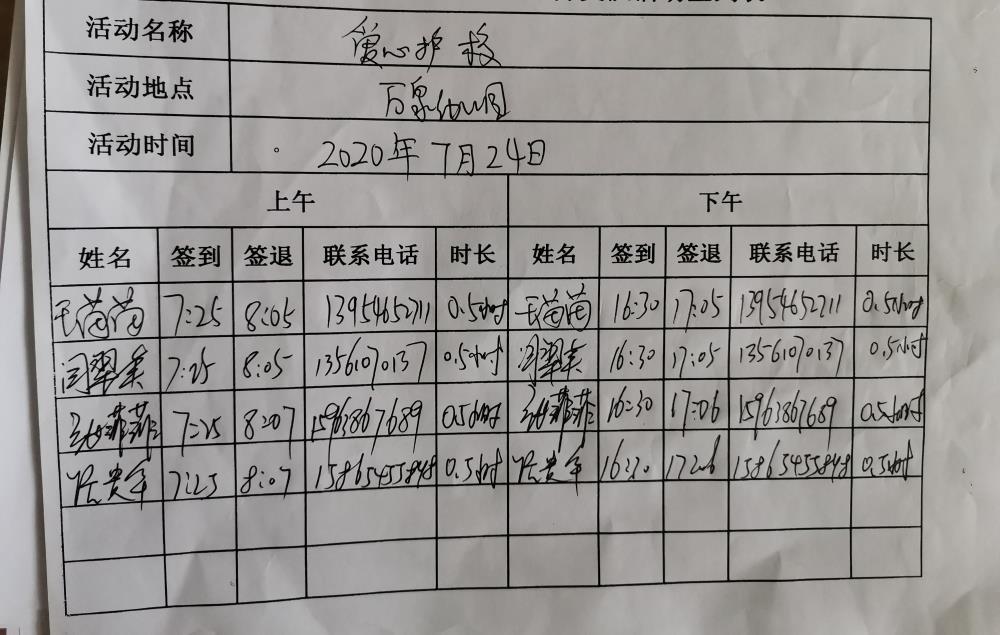 活动名称 爱心护校
活动地点 万泉幼儿园
活动时间 2020年7月24日
上午 下午
姓名 签到 签退 联系电话 时长 姓名 签到 签退 联系电话 时长
王茵茵 7:25 8:05 13954652711 0.5小时 王茵茵 16:30 17:05 13954652711 0.5小时
闫翠美 7:25 8:05 13561070137 0.5小时 闫翠美 16:30 17:05 13561070137 0.5小时
菲菲 7:25 8:07 15963867689 0.5小时 菲菲 16:30 17:06 15963867689 0.5小时
贵军 7:25 8:07 15865455848 0.5小时 贵军 16:30 17:06 15865455848 0.5小时